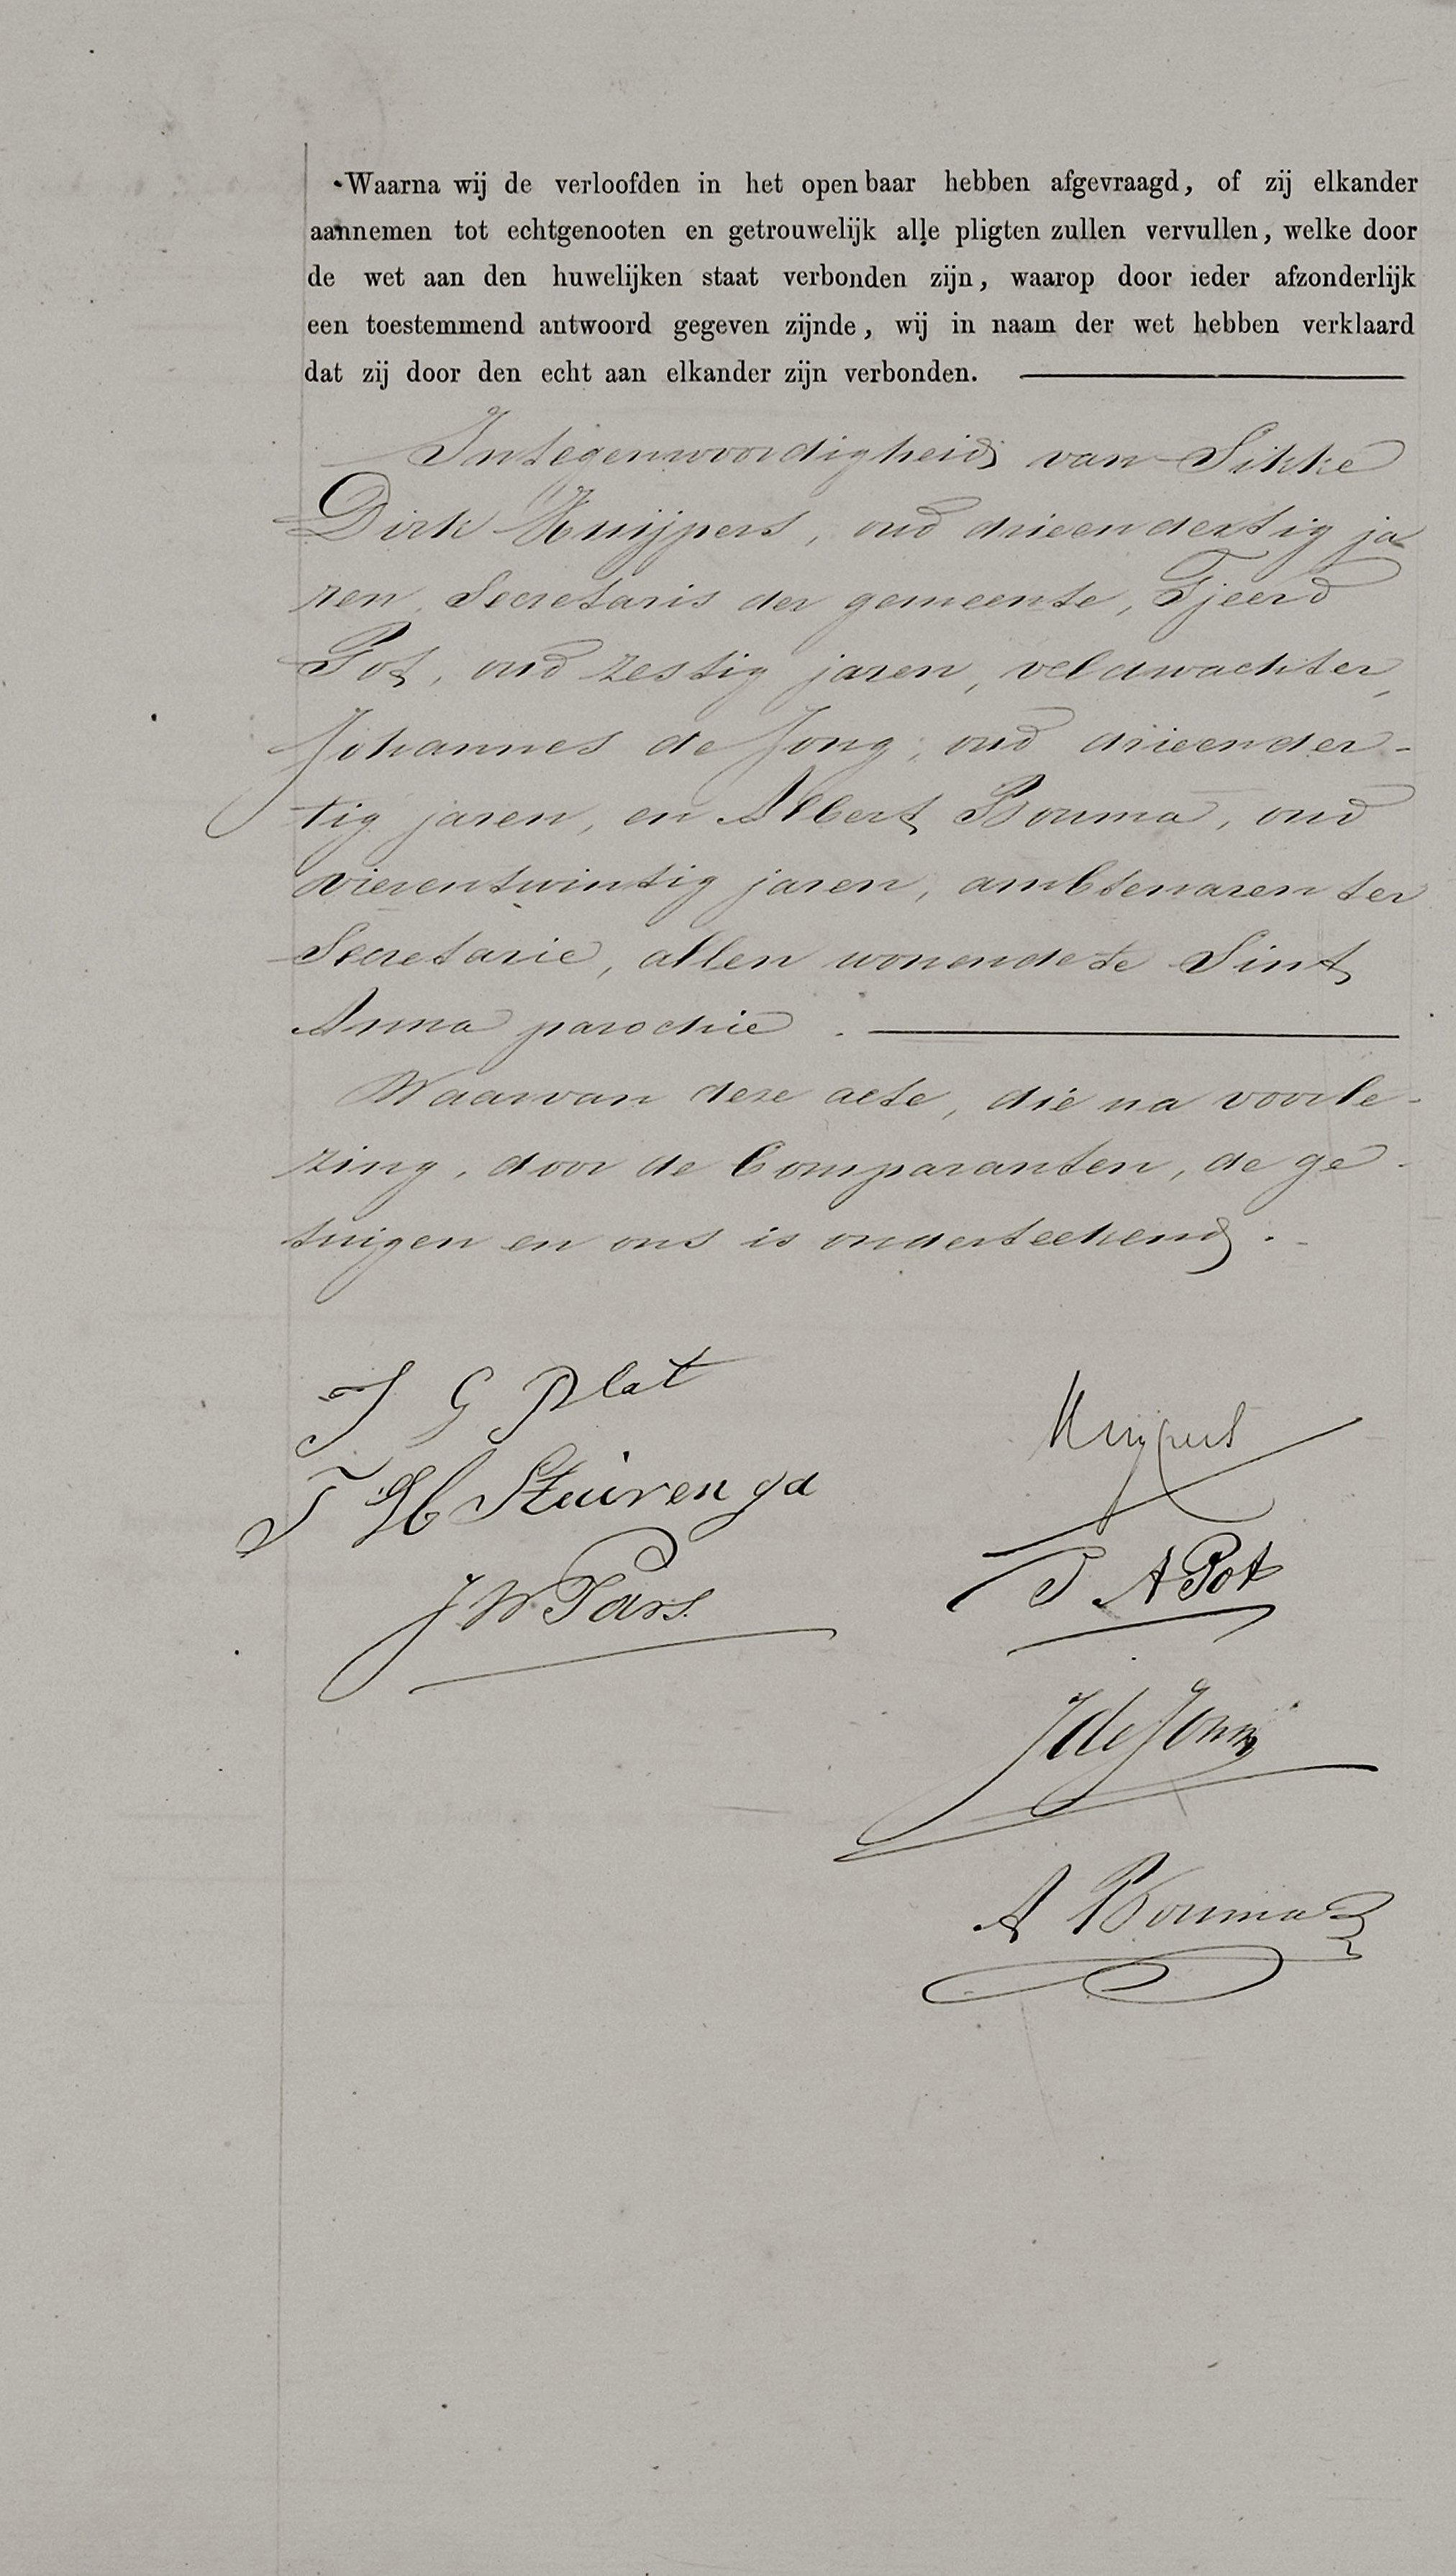 Waarna wij de verloofden in het openbaar hebben afgevraagd, of zij elkander
aannemen tot echtgenooten en getrouwelijk alle pligten zullen vervullen, welke door
de wet aan den huwelijken staat verbonden zijn, waarop door ieder afzonderlijk
een toestemmend antwoord gegeven zijnde, wij in naam der wet hebben verklaard
dat zij door den echt aan elkander zijn verbonden.
In tegenwoordigheid van Sikke
Dirk Kuijpers, oud drieendertig ja
ren, Secretaris der gemeente, Tjeerd
Pot, oud zestig jaren, veldwachter,
Johannes de Jong, oud drieender-
tig jaren, en Albert Bouma, oud
vierentwintig jaren, ambtenaren ter
Secretarie, allen wonende te Sint
Anna parochie.
Waarvan deze acte, die na voorle-
zing, door de Comparanten, de ge-
tuigen en ons is onderteekend.
J G Plat
Kuijpers
T H Stuivenga
T A Pot
J W Pars.
J de Jong
A Bouma